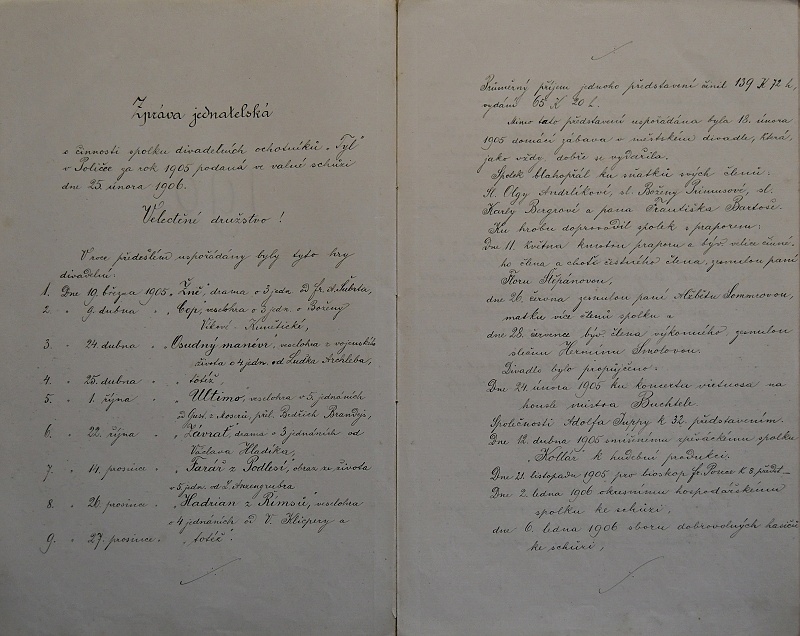 Zpráva jednatelská
o činnosti spolku divadelních ochotníků „Tyl"
v Poličce za rok 1905 podaná ve valné schůzi
dne 25. února 1906.
Velectění družstvo!
V roce předešlém uspořádány byly tyto hry
divadelní:
1. Dne 19. března 1905, „Žně", drama o 3 jedn. od Fr. A. Šuberta,
2. „ 9. dubna „ „Čop", veselohra o 3 jedn. o Boženy
Vikové-Kunětické,
3. „ 24 dubna „ „Osudný manévr", veselohra z vojenského
života o 4 jedn. od Luďka Archleba,
4. „ 25. dubna „ „totéž".
5. „ 1. října „ „Ultimo", veselohra v 5. jednáních
od Gust. z Moserů, přel. Bedřich Brandejs,
6. „ 22. října „ „Závrať", drama o 3 jednáních od
Václava Hladíka,
7. „ 14. prosince „ „Farář z Podlesí", obraz ze života
o 5 jedn. od L. Anzengrubra
8. „ 26. prosince „ „Hadrián z Římsů", veselohra
o 4 jednáních od V. Klicpery a
9. „ 27. prosince „ „totéž".
Průměrný příjem jednoho představení činil 139 K 72 h,
vydání 65 K 20 h.
Mimo tato představení uspořádána byla 18. února
1905 domácí zábava v městském divadle, která,
jako vždy, dobře se vydařila.
Spolek blahopřál ku sňatku svých členů:
Sl. Olgy Andrlíkové, sl. Boženy Primusové, sl.
Karly Bergrové a pana Františka Bartoše.
Ku hrobu doprovodil spolek s praporem:
Dne 11. května kmotru praporu a býv. velice činné-
ho člena a choť čestného člena, zesnulou paní
Floru Štěpánovou,
dne 26. června zesnulou paní Alžbětu Sommrovou,
matku více členů spolku a
dne 28. července býv. člena výkonného, zesnulou
slečnu Herminu Smolovou.
Divadlo bylo propůjčeno:
Dne 24. února 1905 ku koncertu virtuosa na
housle mistra Buchtele.
Společnosti Adolfa Suppy k 32 představením.
Dne 12. dubna 1905 smíšenému zpěváckému spolku
„Kollár" k hudební produkci.
Dne 21. listopadu 1905 pro bioskop Fr. Ponce k 8 předst.
Dne 2. ledna 1906 okresnímu hospodářskému
spolku ke schůzi,
dne 6. ledna 1906 sboru dobrovolných hasičů
ke schůzi,